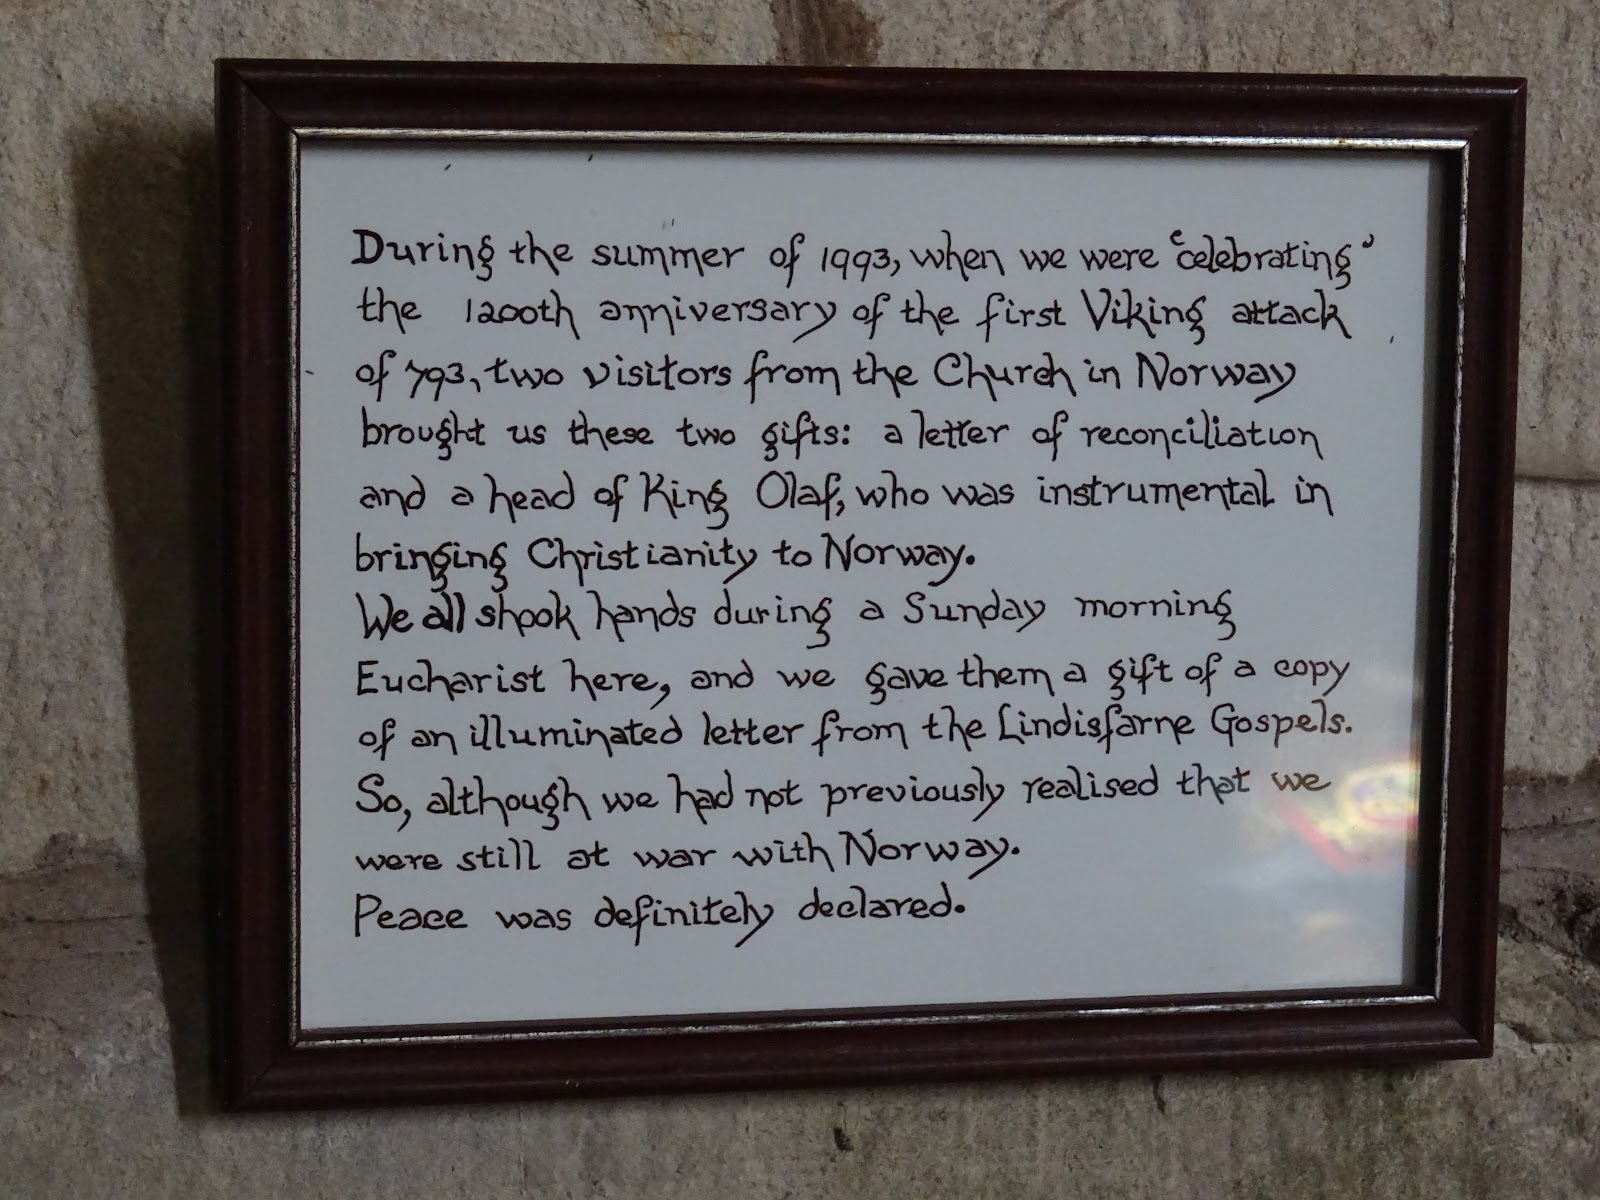 During the summer of 1993, when we were 'celebrating'
the 1200th anniversary of the first Viking attack
of 793, two visitors from the Church in Norway
brought us these two gifts: a letter of reconciliation
and a head of King Olaf, who was instrumental in
bringing Christianity to Norway.
We all shook hands during a Sunday morning
Eucharist here, and we gave them a gift of a copy
of an illuminated letter from the Lindisfarne Gospels.
So, although we had not previously realised that we
were still at war with Norway.
Peace was definitely declared.